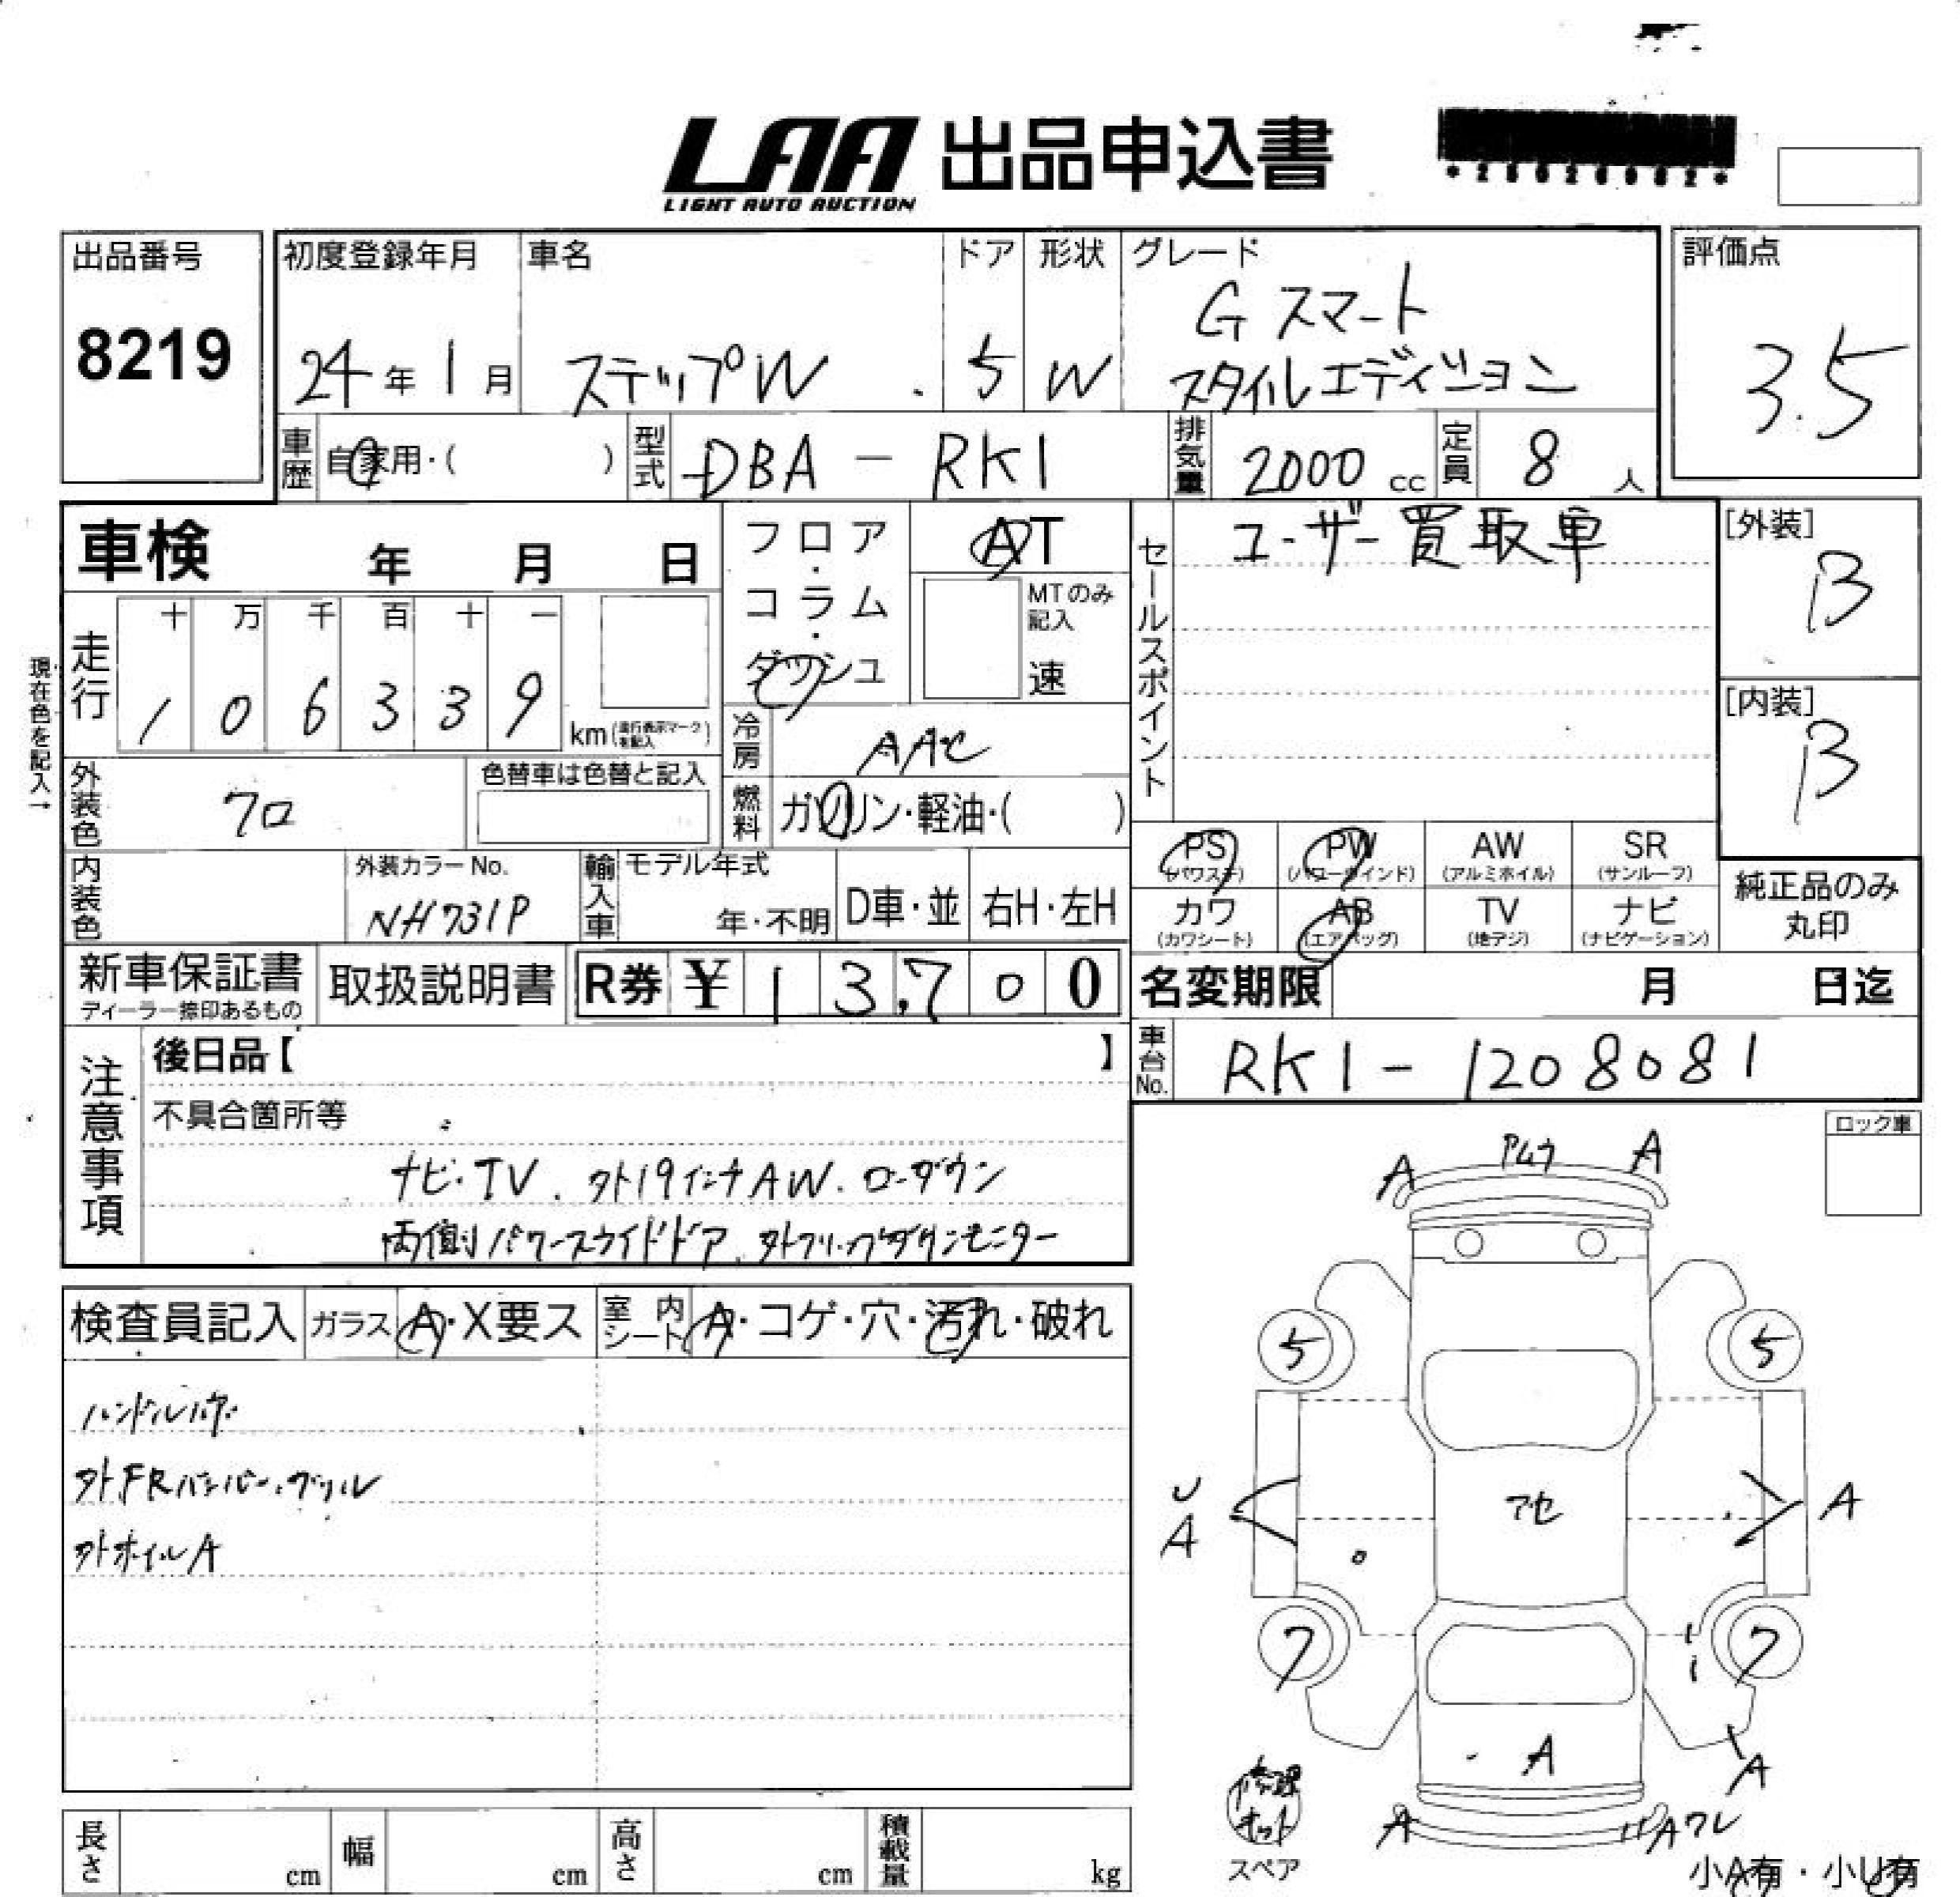 LAA 出品申込書
LIGHT AUTO AUCTION
出品番号
8219
初度登録年月
24年 1月
車名
ステップW
ドア
5
形状
W
グレード
G スマート
スタイルエディション
評価点
3.5
車歴 自家用・( )
型式 DBA - RK1
排気量 2000 cc
定員 8 人
車検 年 月 日
フロア・コラム・ダッシュ
AT
MTのみ記入
速
セールスポイント
ユーザー買取車
[外装]
B
[内装]
B
現在色を記入→
走行
十 万 千 百 十 一
1 0 6 3 3 9 km (走行表示マークを記入)
冷房 AAC
燃料 ガソリン・軽油・( )
外装色 クロ
色替車は色替と記入
内装色
外装カラーNo.
NH731P
輸入車
モデル年式
年・不明
D車・並
右H・左H
PS (パワステ)
PW (パワーウインド)
AW (アルミホイル)
SR (サンルーフ)
カワ (カワシート)
AB (エアバッグ)
TV (地デジ)
ナビ (ナビゲーション)
純正品のみ
丸印
新車保証書
ディーラー捺印あるもの
取扱説明書
R券 ¥ 1 3,7 0 0
名変期限 月 日迄
車台No. RK1-1208081
注意事項
後日品【 】
不具合箇所等
ナビ・TV. 外19インチAW. ローダウン
両側パワースライドドア. 外フリップダウンモニター
ロック車
検査員記入
ガラス A・X要ス
室内シート A・コゲ・穴・汚れ・破れ
外FRバンパー・グリル
外ホイルA
A A
5 5
U
A
アセ
A
7 7
A
A
A Aワレ
修理キット
スペア
小A有・小U有
長さ cm
幅 cm
高さ cm
積載量 kg